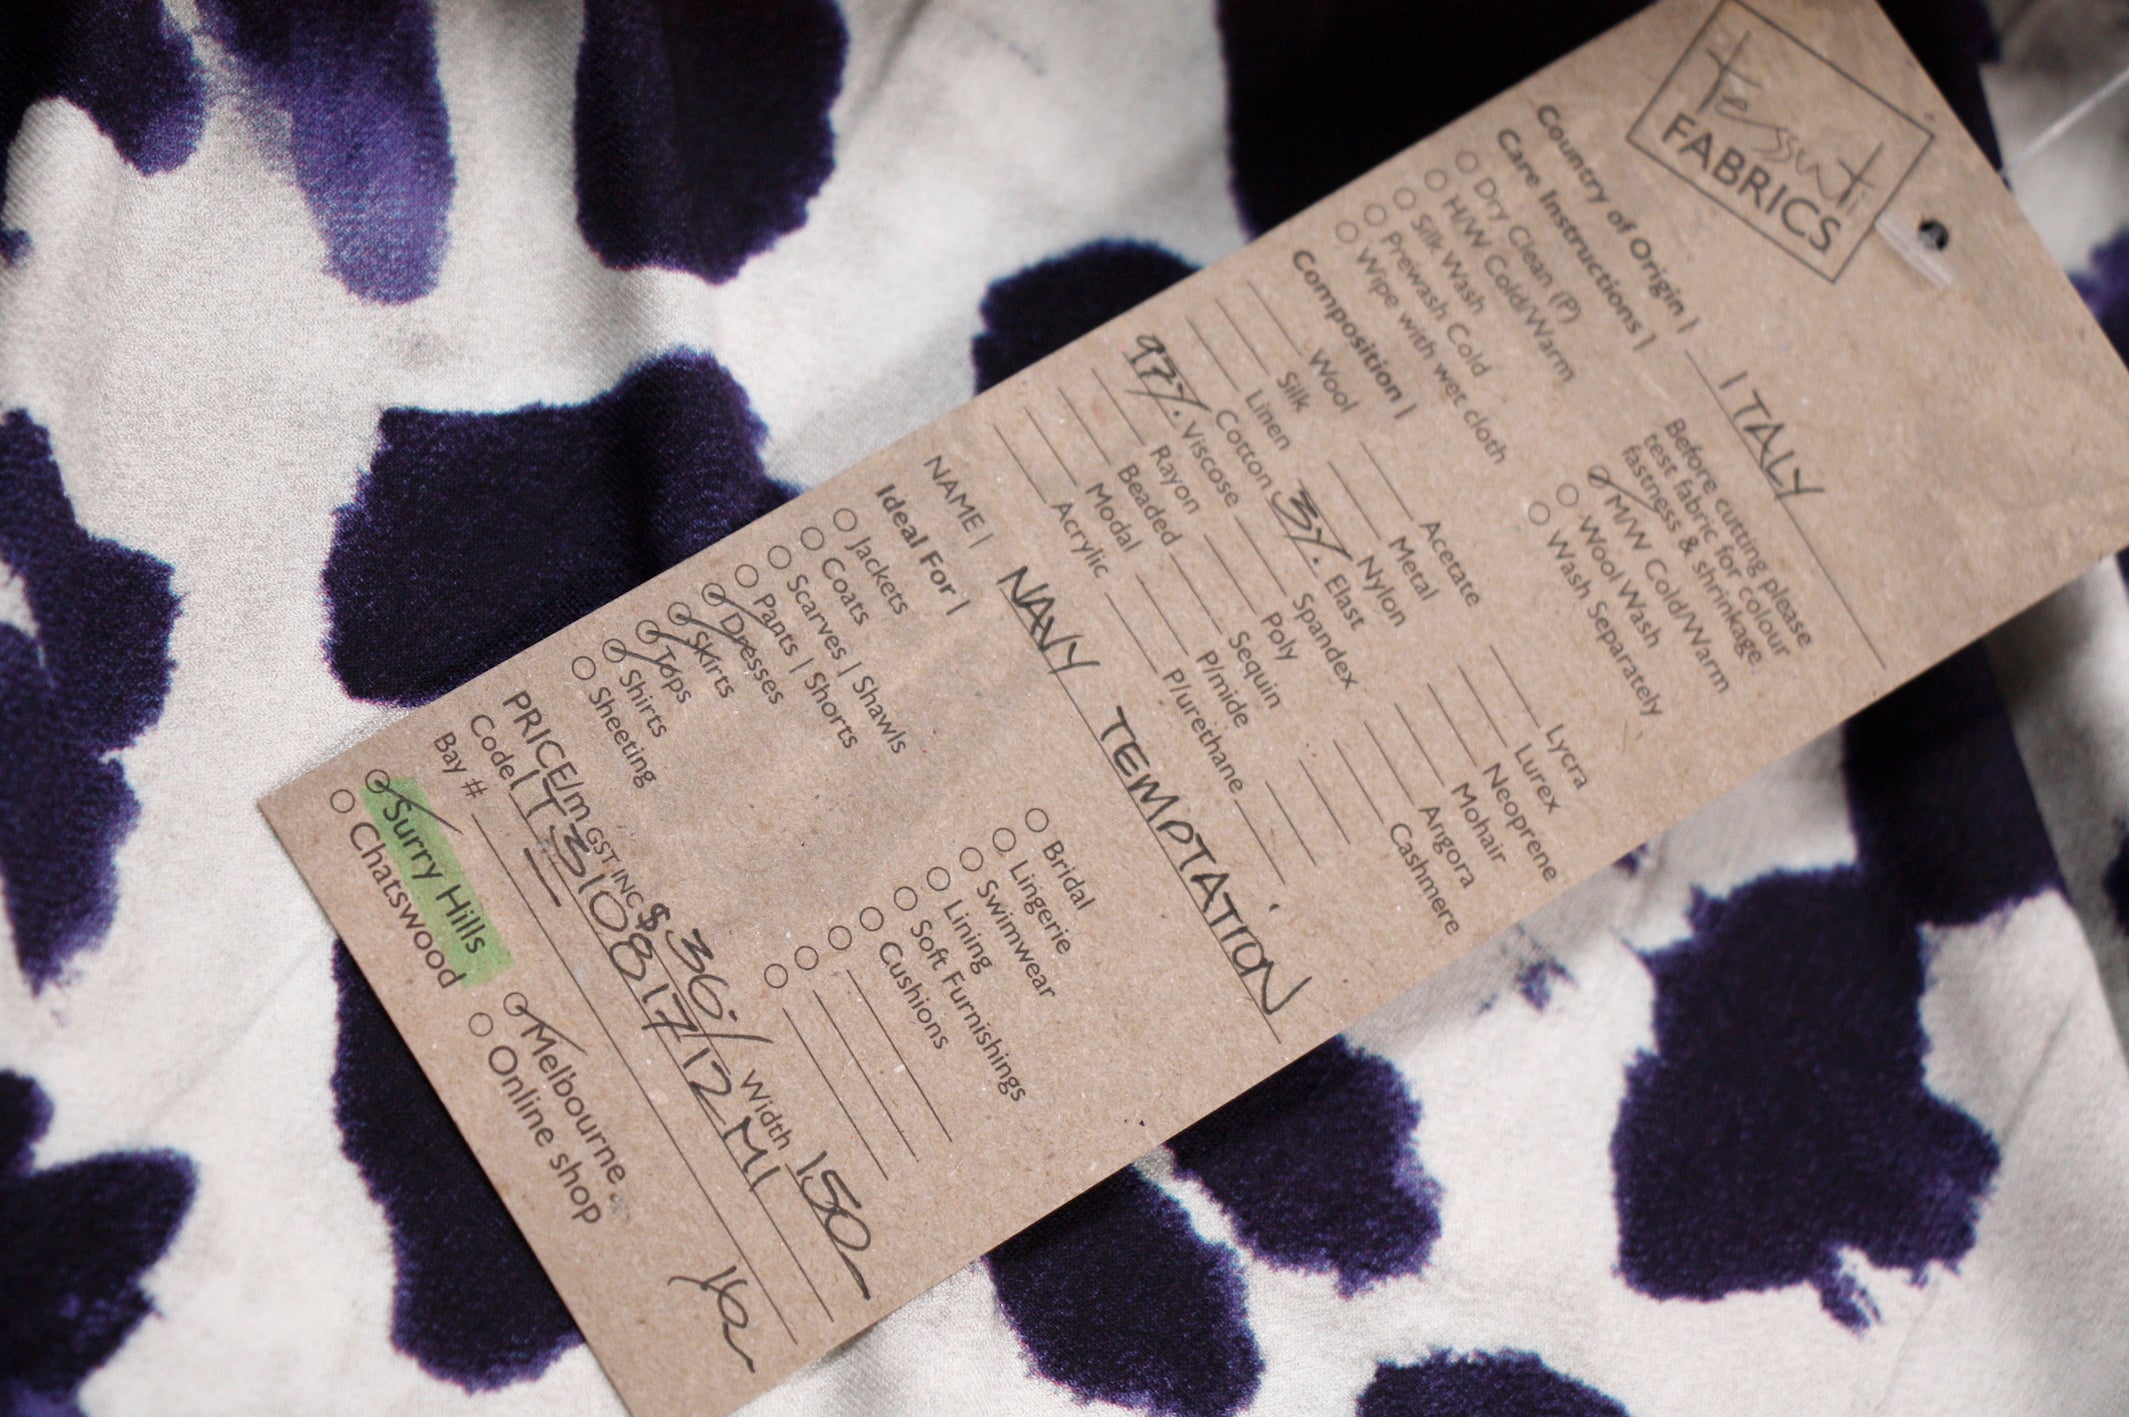 Tessuti
FABRICS
Country of Origin | ITALY
Care Instructions |
Dry Clean (P)
H/W Cold/Warm
Silk Wash
Prewash Cold
Wipe with wet cloth
Before cutting please
test fabric for colour
fastness & shrinkage
M/W Cold/Warm
Wool Wash
Wash Separately
Composition |
Wool
Silk
Linen
Cotton
97% Viscose
Rayon
Beaded
Modal
Acrylic
Acetate
Metal
Nylon
3% Elast
Spandex
Poly
Sequin
P/mide
P/urethane
Lycra
Lurex
Neoprene
Mohair
Angora
Cashmere
NAME | NAVY TEMPTATION
Ideal For |
Jackets
Coats
Scarves | Shawls
Pants | Shorts
Dresses
Skirts
Tops
Shirts
Sheeting
Bridal
Lingerie
Swimwear
Lining
Soft Furnishings
Cushions
PRICE/m GST INC $36./ Width 150
Code | IT310817/12MI
Bay #
Surry Hills
Chatswood
Melbourne
Online shop